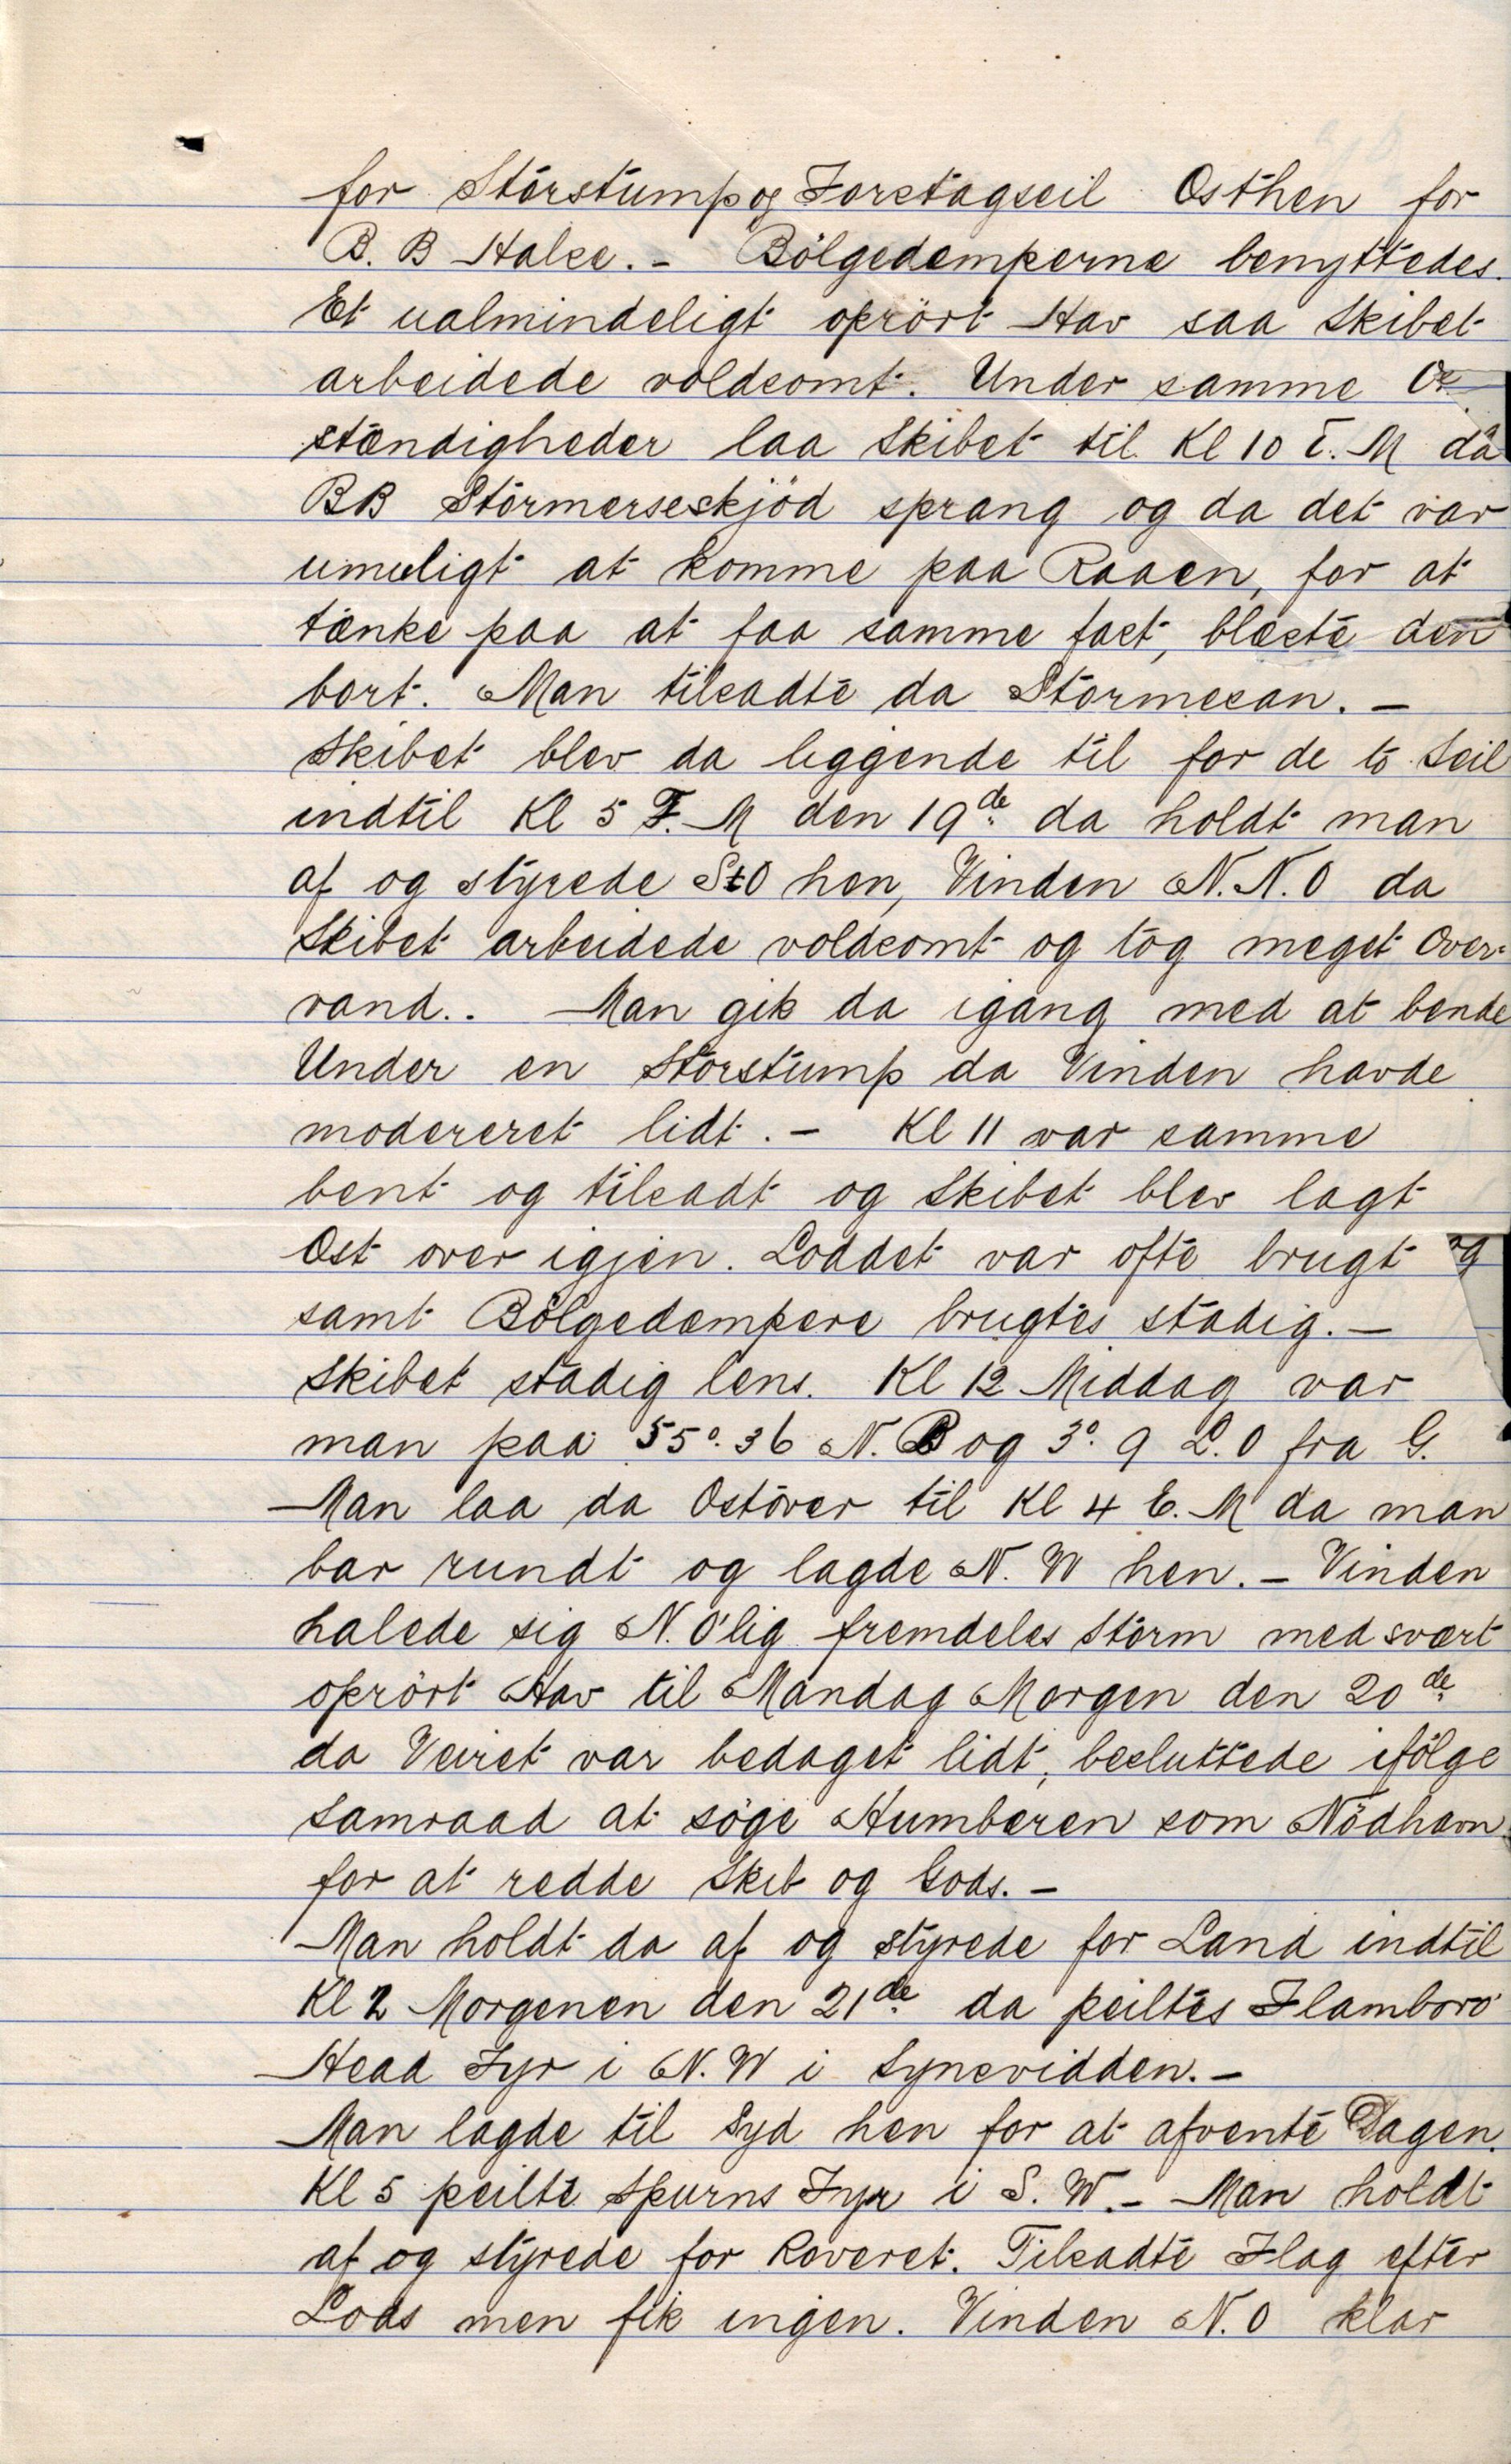 for Storstump og Foretagseil Osthen for
B. B Halse. – Bölgedemperne benyttedes.
Et ualmindeligt oprört Hav saa Skibet
arbeidede voldsomt. Under samme
stændigheder laa Skibet til Kl 10 E. M da
BB Stormerseskjöd sprang og da det var
umuligt at komme paa Raaen, for at
tænke paa at faa samme fast, blæste den
bort. Man tilsadte da Stormesan. –
Skibet blev da liggende til for de to Seil
indtil Kl 5 F. M den 19de da holdt man
af og styrede StO hen, Vinden N. N. O da
Skibet arbeidede voldsomt og tog meget Over-
vand.. Man gik da igang med at bende
Under en Storstump da Vinden havde
modereret lidt. – Kl 11 var samme
bent og tilsadt og Skibet blev lagt
Ost over igjen. Loddet var ofte brugt og
samt Bölgedempere brugtes stadig. –
Skibet stadig lens. Kl 12 Middag var
man paa 55°. 36 N. B og 3°. 9 L. O fra G.
Man laa da Ostover til Kl 4 E. M da man
bar rundt og lagde N. W hen. – Vinden
halede sig N. O'lig fremdeles Storm med svært
oprört Hav til Mandag Morgen den 20de
da Veiret var bedaget lidt, besluttede ifölge
Samraad at söge Humberen som Nödhavn
for at redde Skib og Gods. –
Man holdt da af og styrede for Land indtil
Kl 2 Morgenen den 21de da peiltes Flamboro'
Head Fyr i N. W i Synsvidden. –
Man lagde til Syd hen for at afvente Dagen.
Kl 5 peilte Spurns Fyr i S. W. – Man holdt
af og styrede for Roveret. Tilsadte Flag efter
Lods men fik ingen. Vinden N. O klar